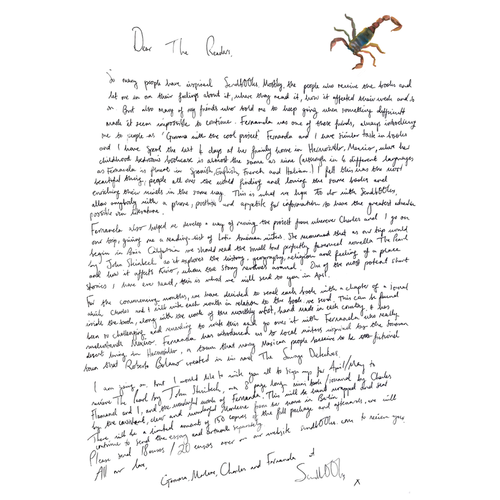 Dear The Readers,
So many people have inspired Sendb00ks. Mostly, the people who receive the books and
let me in on their feelings about it, where they read it, how it affected their week and so
on. But also many of my friends who told me to keep going when something difficult
made it seem impossible to continue. Fernanda was one of those friends, always introducing
me to people as 'Gemma with the cool project'. Fernanda and I have similar taste in books
and I have spent the last 6 days at her family home in Hermosillo, Mexico, where her
childhood bedroom bookcase is almost the same as mine (although in 4 different languages
as Fernanda is fluent in Spanish, English, French and Italian). I felt this was the most
beautiful thing, people all over the world finding and loving the same books and
enriching their minds in the same way. This is what we hope to do with Sendb00ks,
allow anybody with a phone, postbox and appetite for information to have the greatest adventure
possible via literature.
Fernanda also helped me develop a way of running the project from wherever Charles and I go on
our trip, giving me a reading list of Latin American writers. She reccomend that as our trip would
begin in Baja California we should read the small but perfectly formed novella The Pearl
by John Steinbeck as it explores the history, geography, religion and feeling of a place
and how it affects Kino, whom the story revolves around. One of the most potent short
stories I have ever read, this is what we will send to you in April.
For the consecutive months, we have decided to send each book with a chapter of a journal
which Charles and I will write each month in relation to the book we send. This can be found
inside the book, along with the work of the monthly artist, hand made in each country. It has
been so challenging and rewarding to write this and go over it with Fernanda who really
understands Mexico. Fernanda has introduced us to local writers inspired by the Sonoran
desert living in Hermosillo, a town that many Mexican people believe to be the fictional
town that Roberto Bolano created in his novel The Savage Detectives.
I am going on, but I would like to wish you all to sign up for April/May to
receive The Pearl by John Steinbeck, our page long mini book/journal by Charles
and I, and the wonderful work of Fernanda. This will be hand wrapped and sent
by the constant, clever and wonderful Marlene from her home in Berlin.
There will be a limited amount of 150 copies of the full package and afterwards, we will
continue to send the essay and artwork separately.
Please send 18euros / 20 euros over on our website sendb00ks.com to receive yours
All our love,
Gemma, Marlene, Charles and Fernanda
Sendb00ks x